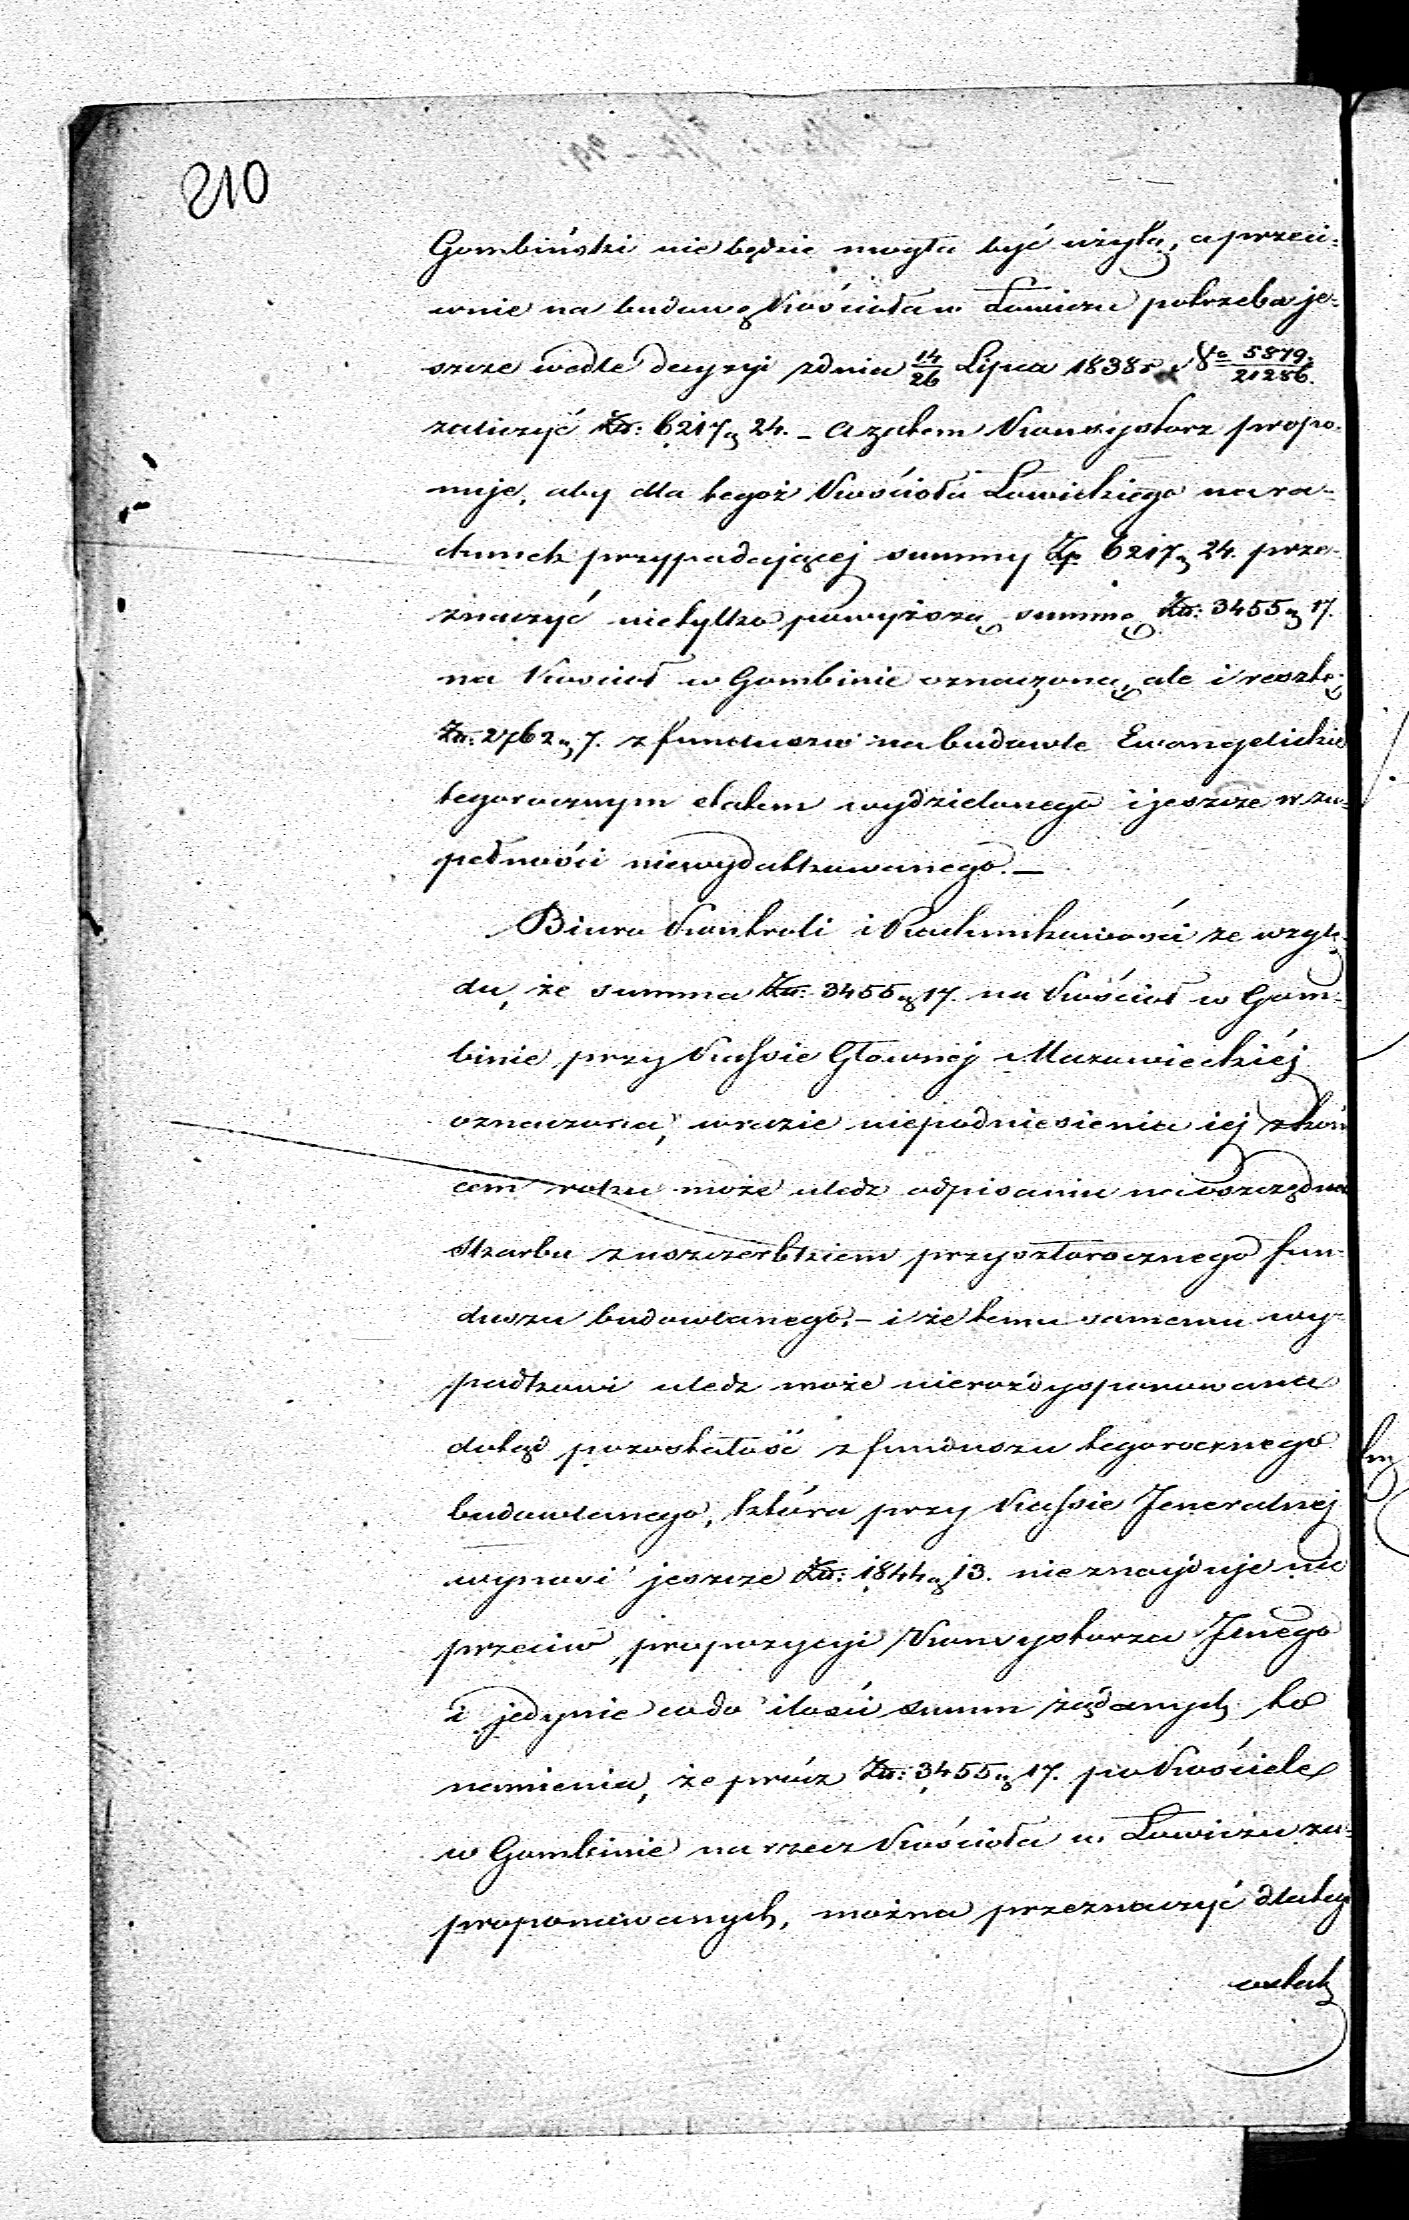 210
Gombiński nie będzie mogła być użytą, a przeci-
wnie na budowę Kościoła w Łowiczu potrzeba je-
szcze wedle decyzyi z dnia 14/26 Lipca 1838 r. No 5879/21256.
zaliczyć Złr: 6217 g 24. – a zatem Konsystorz propo-
nuje, aby dla tegoż Kościoła Łowickiego na ra-
chunek przypadającej summy Zp. 6217 g 24. prze-
znaczyć nietylko powyższą summę Złr: 3455 g 17.
na Kościoł w Gombinie oznaczoną, ale i resztę
Złr: 2762 g 7. z funduszu na budowle Ewangelickie
tegorocznym etatem wydzielonego i jeszcze w zu-
pełności niewydatkowanego. –
Biuro Kontroli i Rachunkowości ze wzglę-
du, że summa Złr: 3455 g 17. na Kościoł w Gom-
binie przy Kassie Głownej Mazowieckiéj
oznaczona, w razie niepodniesienia iej z koń-
cem roku może uledz odpisaniu na oszczędność
Skarbu z uszczerbkiem przyszłorocznego fun-
duszu budowlanego, – i że temu samemu wy-
padkowi uledz może nierozdysponowana
dotąd pozostałość z funduszu tegorocznego
budowlanego, która przy Kassie Jeneralnej
wynosi jeszcze Złr: 1844 g 13. nie znayduje nic
przeciw propozycyi Konsystorza Jnego
i jedynie co do ilości summ żądanych to
namienia, że prócz Złr: 3455 g 17. po Kościele
w Gombinie na rzecz Kościoła w Łowiczu za-
proponowanych, można przeznaczyć dla tegoż